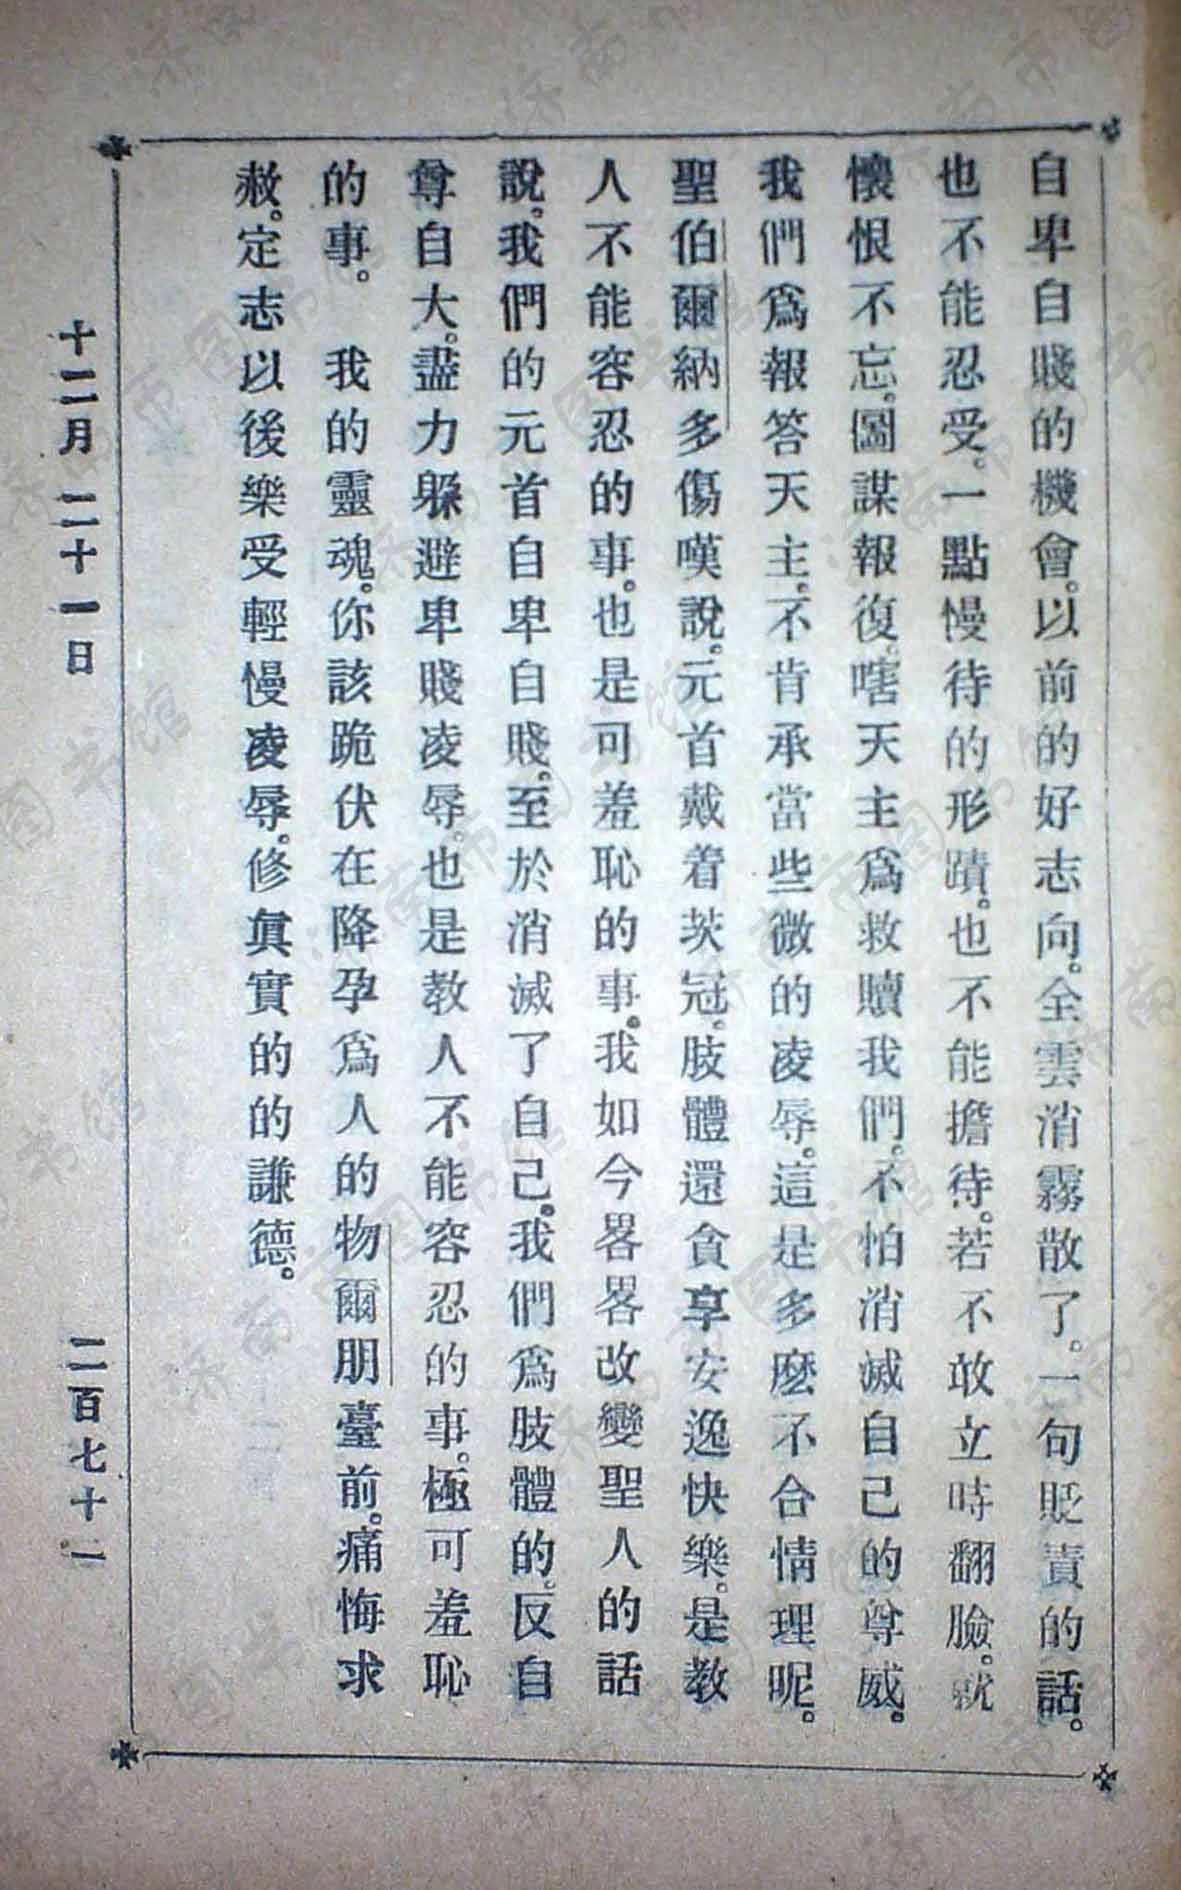 自卑自賤的機會。以前的好志向。全雲消霧散了。一句貶責的話。
也不能忍受。一點慢待的形蹟。也不能擔待。若不敢立時翻臉。就
懷恨不忘。圖謀報復。嗐天主爲救贖我們。不怕消滅自己的尊威。
我們爲報答天主。不肯承當些微的凌辱。這是多麼不合情理呢。
聖伯爾納多傷嘆說。元首戴着茨冠。肢體還貪享安逸快樂。是教
人不能容忍的事。也是可羞恥的事。我如今畧畧改變聖人的話
說。我們的元首自卑自賤。至於消滅了自己。我們爲肢體的。反自
尊自大。盡力躲避卑賤凌辱。也是教人不能容忍的事。極可羞恥
的事。　我的靈魂。你該跪伏在降孕爲人的物爾朋臺前。痛悔求
赦。定志以後樂受輕慢凌辱。修眞實的的謙德。
十二月　二十一日
二百七十一
济南市图书馆